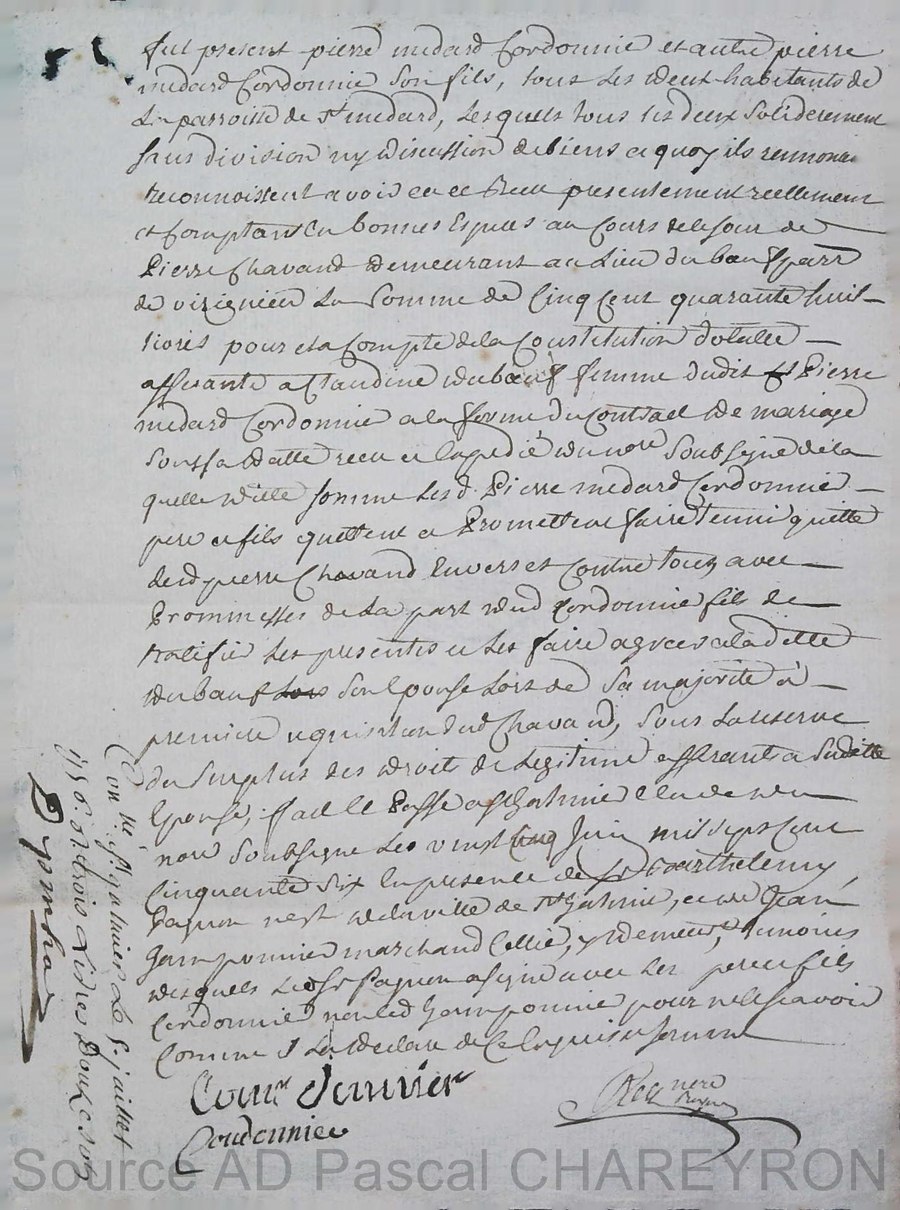 fut present pierre medard Cordonnie et autre pierre
medard Cordonnie son fils, tous Les deux habitants de
La parroisse de St medard, Lesquels tous Les deux Soliderement
sans division ny discussion de biens a quoy ils renoncent
reconnoissent avoir eu et Receu presentement reellement
et Comptant En bonnes Especes au Cours de Ce Jour de
Pierre Chavand demeurant au Lieu du parr
de virignieu La Somme de Cinq Cent quarante huit
livres pour et a Compte de la Constitution dotalle
afferante a Claudine dubœuf femme dudit Pierre
medard Cordonnie a la forme du Contract de mariage
sous sa datte receu et Expedié du nore Soubsigné de la
quelle ditte somme Lesd. Pierre medard Cordonnie
pere et fils quittent et Promettent faire tenir quitte
Led pierre Chavand Envers et Contre tous avec
Prommesses de La part dud Cordonnie fils de
ratifie Les presentes et Les faire agreer a laditte
dubœuf son Epouse Lors de Sa majorité à
premiere requisition dud Chavand, Sous La reserve
du Surplus des droits de Legitime afferants a Saditte
Epouse, fait et Passé a St Galmie Etude du
nore Soubsigné Les vingt cinq Juin mil Sept Cent
Cinquante Six En presence de sr Barthelemy
Pagnon de la ville de St Galmie, et de Jean
Jamponnie marchand Cellie, y demeurt, temoins
desquels Led Sr Pagnon a signé avec Les pere et fils
Cordonnie non led Jamponnie pour ne le Scavoir
Comme il La declare de Ce Enquis et Sommé
Cordonnier
Con lé a St galmier Le 5. juillet
1756. et trois Livres Douze sols
Source AD Pascal CHAREYRON